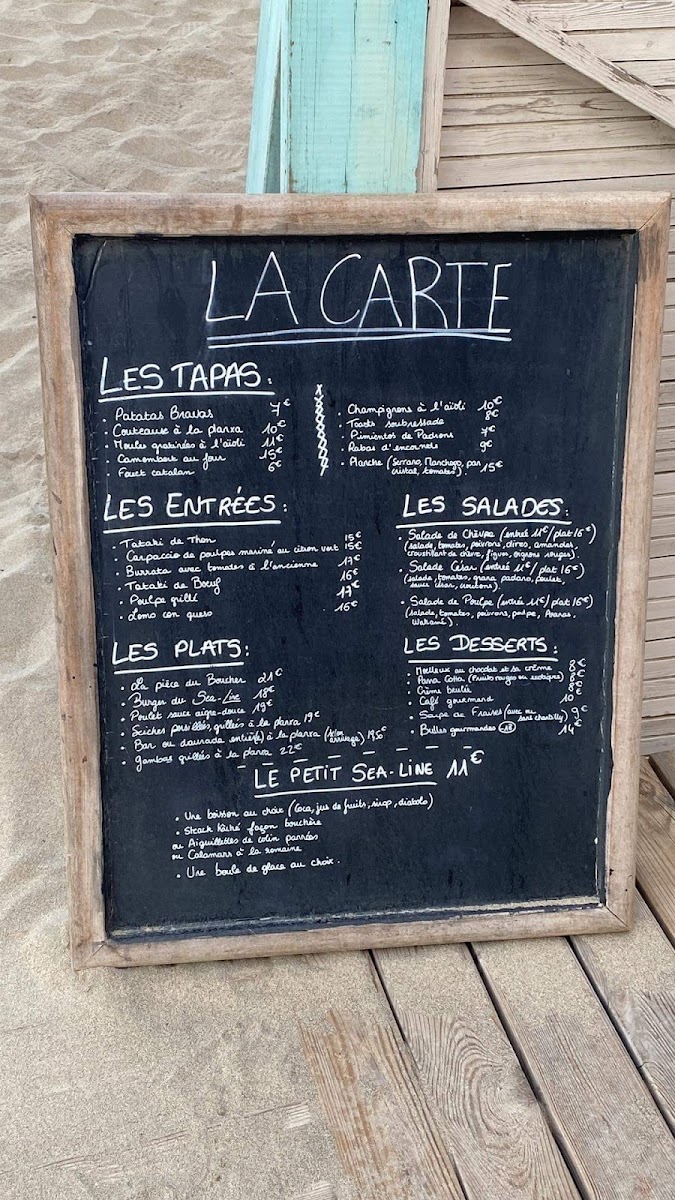 LA CARTE
LES TAPAS:
. Patatas Bravas 7€
. Couteaux à la planxa 10€
. Moules gratinées à l'aïoli 11€
. Camembert au four 15€
. Fouet catalan 6€
. Champignons à l'aïoli 10€
. Toasts soubressade 8€
. Pimientos de Padrons 7€
. Rabas d'encornets 9€
. Planche (Serrano, Manchego, pan
cristal, tomates). 15€
LES ENTRÉES:
. Tataki de Thon 15€
. Carpaccio de poulpes mariné au citron vert 15€
. Burrata avec tomates à l'ancienne 17€
. Tataki de Bœuf 16€
. Poulpe grillé 17€
. Lomo con queso 16€
LES SALADES:
. Salade de Chèvre (entrée 11€/plat 16€)
(salade, tomates, poivrons, olives, amandes
croustillant de chèvre, figues, oignons rouges).
. Salade César (entrée 11€/plat 16€)
(salade, tomates, grana padano, poulet,
sauce césar, croutons).
. Salade de Poulpe (entrée 11€/plat 16€)
(salade, tomates, poivrons, poulpe, Ananas,
Wakamé).
LES PLATS:
. La pièce du Boucher 21€
. Burger du Sea-Line 18€
. Poulet sauce aigre-douce 19€
. Seiches persillées, grillées à la planxa 19€
. Bar ou daurade entier(e) à la planxa (selon
arrivage) 19,50€
. gambas grillés à la planxa 22€
LES DESSERTS:
. Moelleux au chocolat et sa crème 8€
. Panna Cotta (Fruits rouges ou exotiques) 8€
. Crème brulée 8€
. Café gourmand 10
. Soupe de Fraises (avec ou
sans chantilly) 9€
. Bulles gourmandes 14€
LE PETIT SEA-LINE 11€
. Une boisson au choix (Coca, jus de fruits, sirop, diabolo)
. Steack haché façon bouchère
ou Aiguillettes de colin panées
ou Calamars à la romaine
. Une boule de glace au choix.